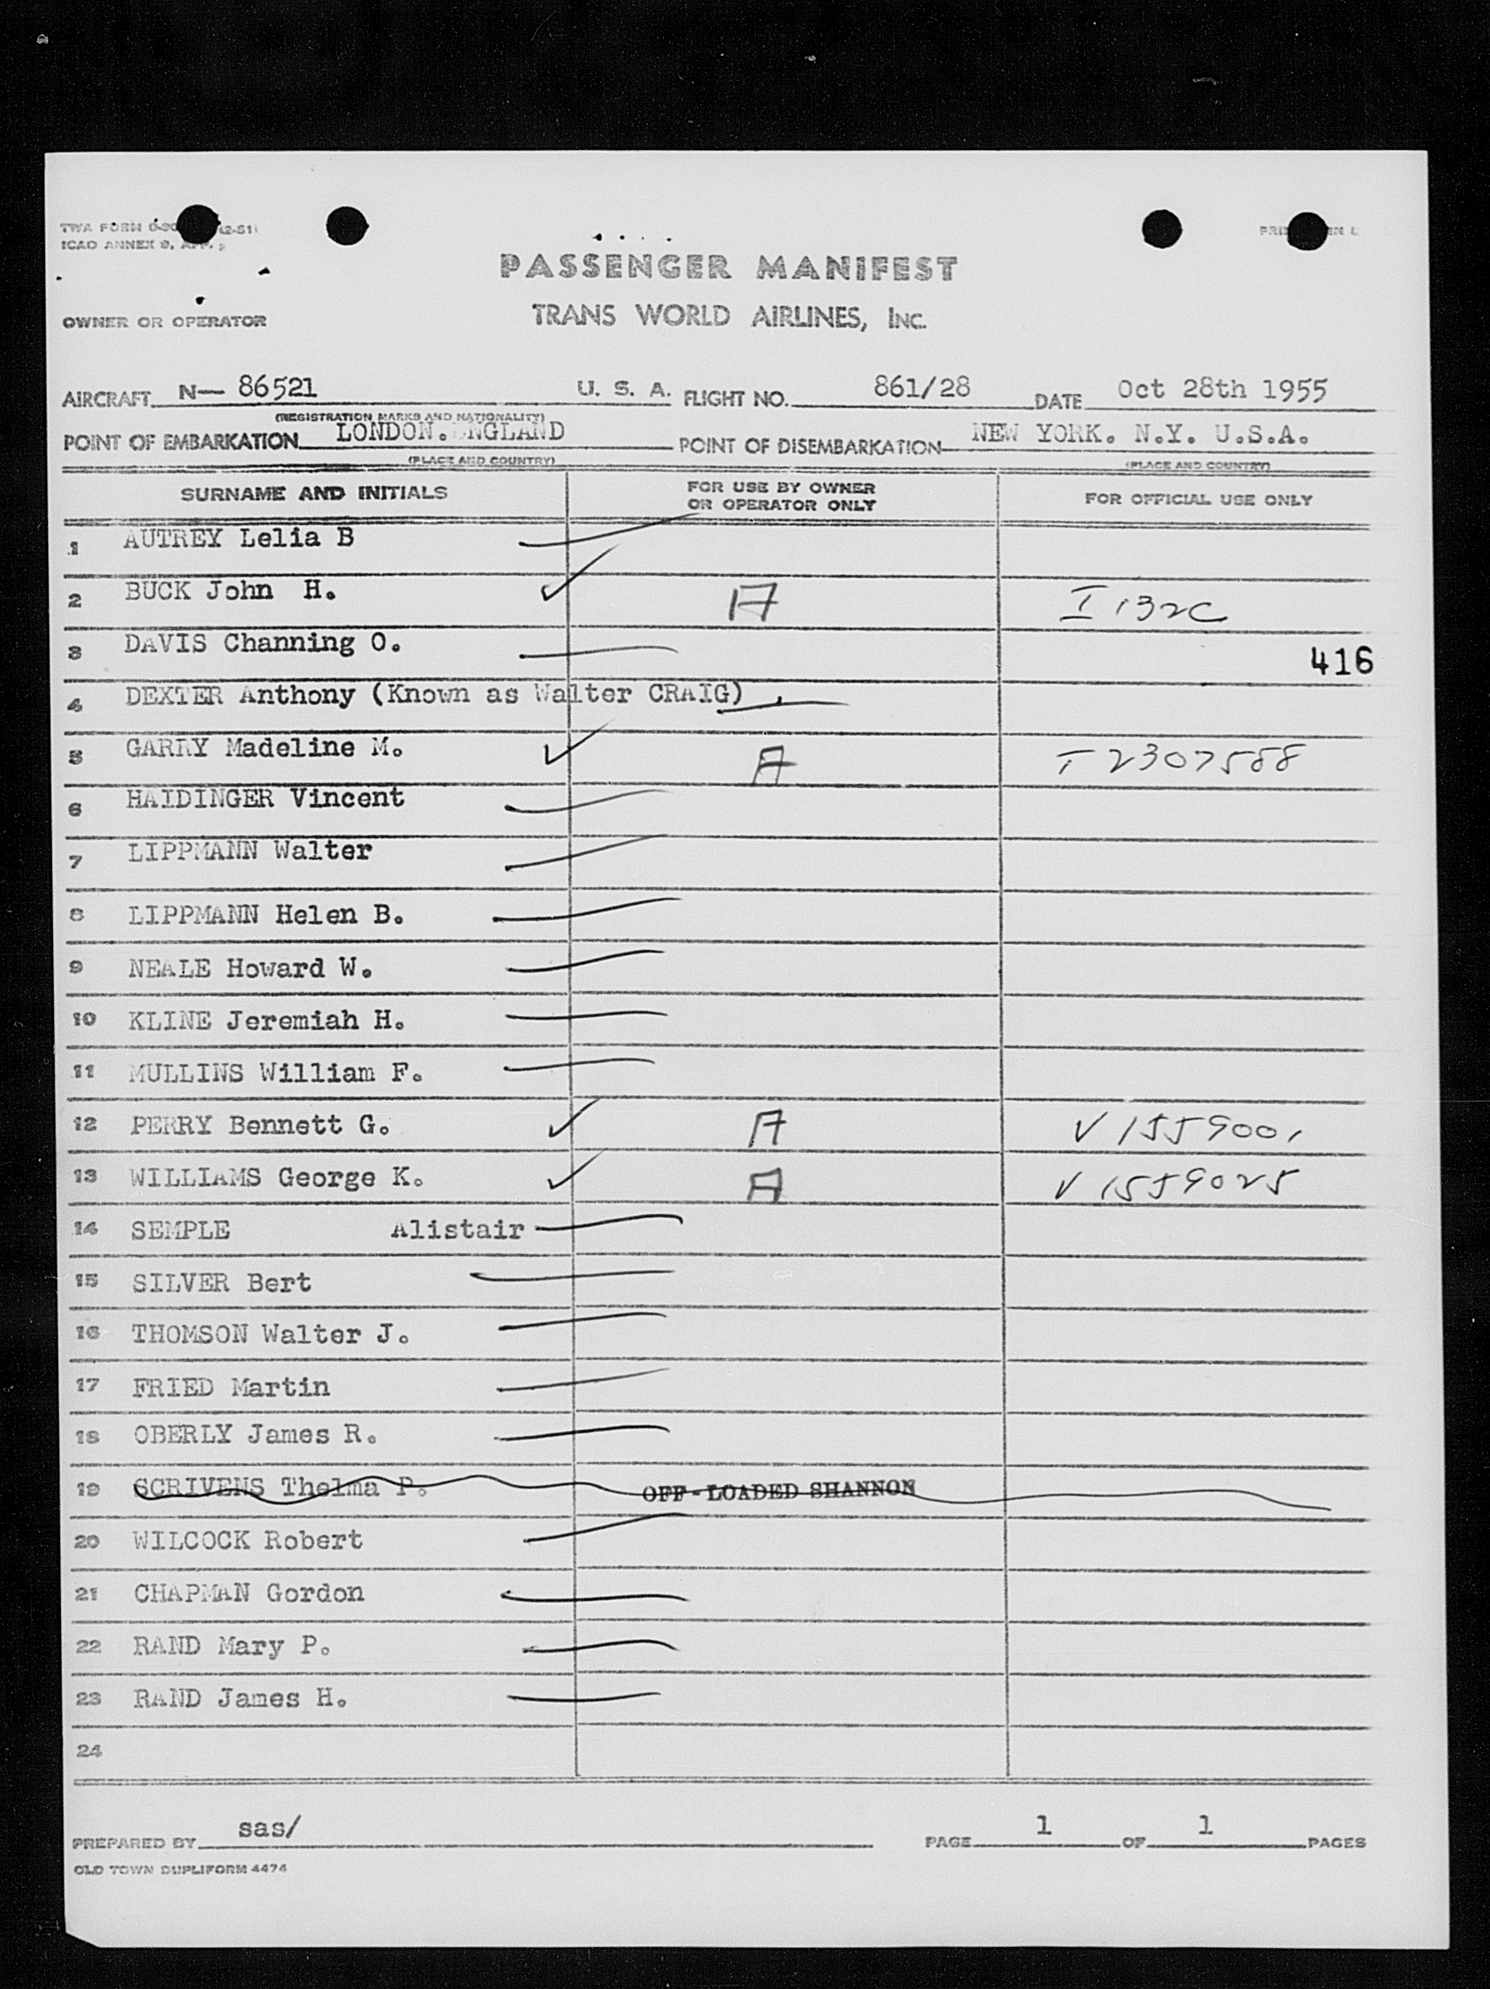 TWA FORM
ICAO ANNEX 9, APP.
PASSENGER MANIFEST
TRANS WORLD AIRLINES, INC.
OWNER OR OPERATOR
AIRCRAFT N— 86521 U. S. A. FLIGHT NO. 861/28 DATE Oct 28th 1955
(REGISTRATION MARKS AND NATIONALITY)
POINT OF EMBARKATION LONDON. ENGLAND POINT OF DISEMBARKATION NEW YORK. N.Y. U.S.A.
(PLACE AND COUNTRY) (PLACE AND COUNTRY)
SURNAME AND INITIALS FOR USE BY OWNER OR OPERATOR ONLY FOR OFFICIAL USE ONLY
1 AUTREY Lelia B
2 BUCK John H. A I 132C
3 DAVIS Channing O. 416
4 DEXTER Anthony (Known as Walter CRAIG)
5 GARRY Madeline M. A T 2307588
6 HAIDINGER Vincent
7 LIPPMANN Walter
8 LIPPMANN Helen B.
9 NEALE Howard W.
10 KLINE Jeremiah H.
11 MULLINS William F.
12 PERRY Bennett G. A V 1559001
13 WILLIAMS George K. A V 1559025
14 SEMPLE Alistair
15 SILVER Bert
16 THOMSON Walter J.
17 FRIED Martin
18 OBERLY James R.
19 SCRIVENS Thelma P. OFF-LOADED SHANNON
20 WILCOCK Robert
21 CHAPMAN Gordon
22 RAND Mary P.
23 RAND James H.
24
PREPARED BY sas/ PAGE 1 OF 1 PAGES
OLD TOWN DUPLIFORM 4474